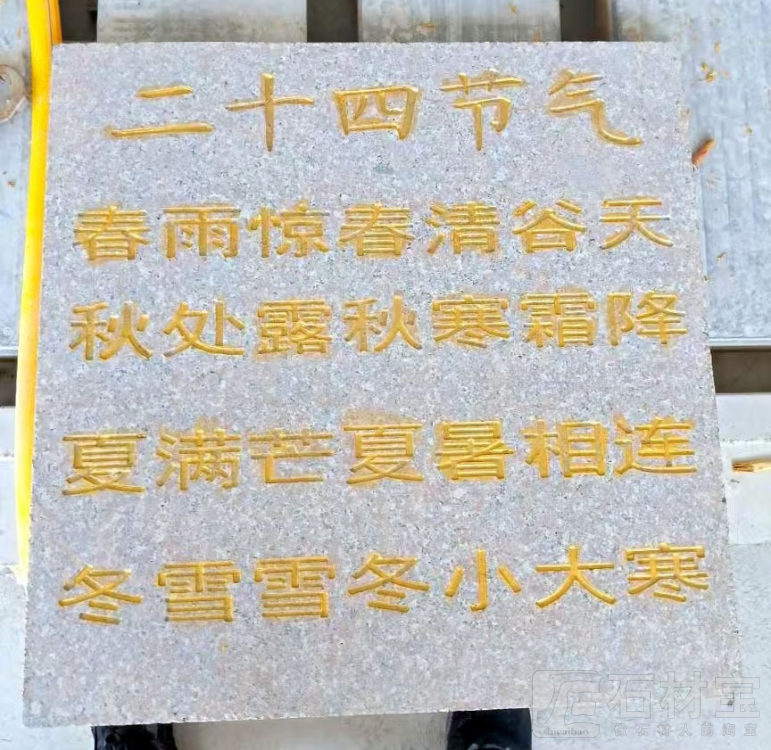 二十四节气
春雨惊春清谷天
秋处露秋寒霜降
夏满芒夏暑相连
冬雪雪冬小大寒
石材宝